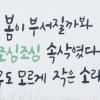 봄이 부서질까봐
조심조심 속삭였다
아무도 모르게 작은 소리